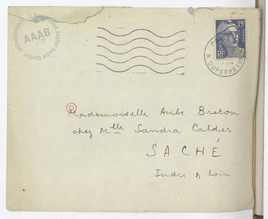 AAAB
15F
RF
R. DUPERRE
Mademoiselle Aube Breton
chez Mlle Sandra Calder
SACHÉ
Indre & Loire